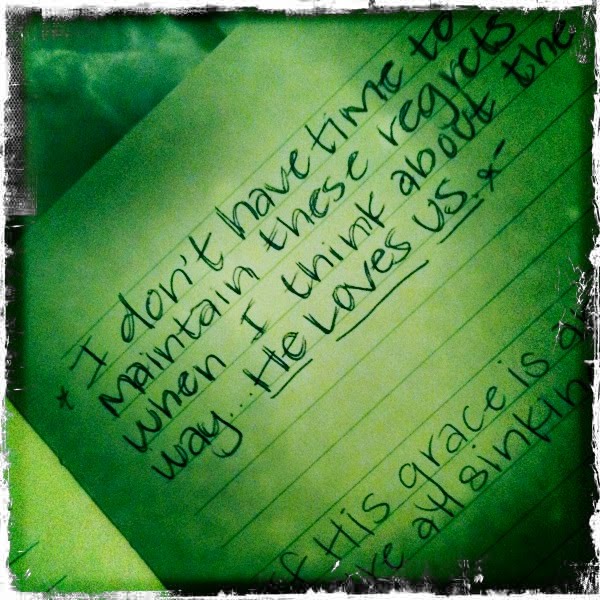 * I don't have time to
maintain these regrets
when I think about the
way... He Loves us. *
If His grace is a
we're all sinkin